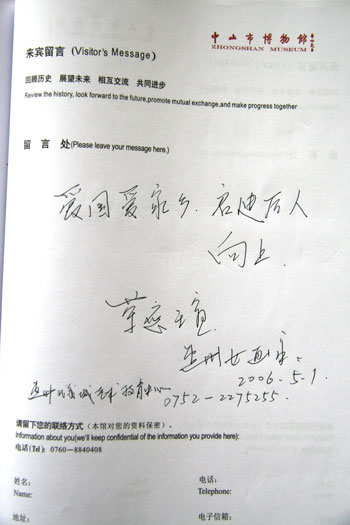 中山市博物館
ZHONGSHAN MUSEUM
来宾留言 (Visitor's Message)
回顾历史 展望未来 相互交流 共同进步
Review the history, look forward to the future,promote mutual exchange,and make progress together
留 言 处(Please leave your message here.)
爱国爱家乡.启迪后人
向上.
2006.5.1.
0752-2275255.
请留下您的联络方式(本馆对您的资料保密).
Information about you(we'll keep confidential of the information you provide here):
电话(Tel): 0760-8840408
姓名: 电话:
Name: Telephone:
地址: 电子信箱: